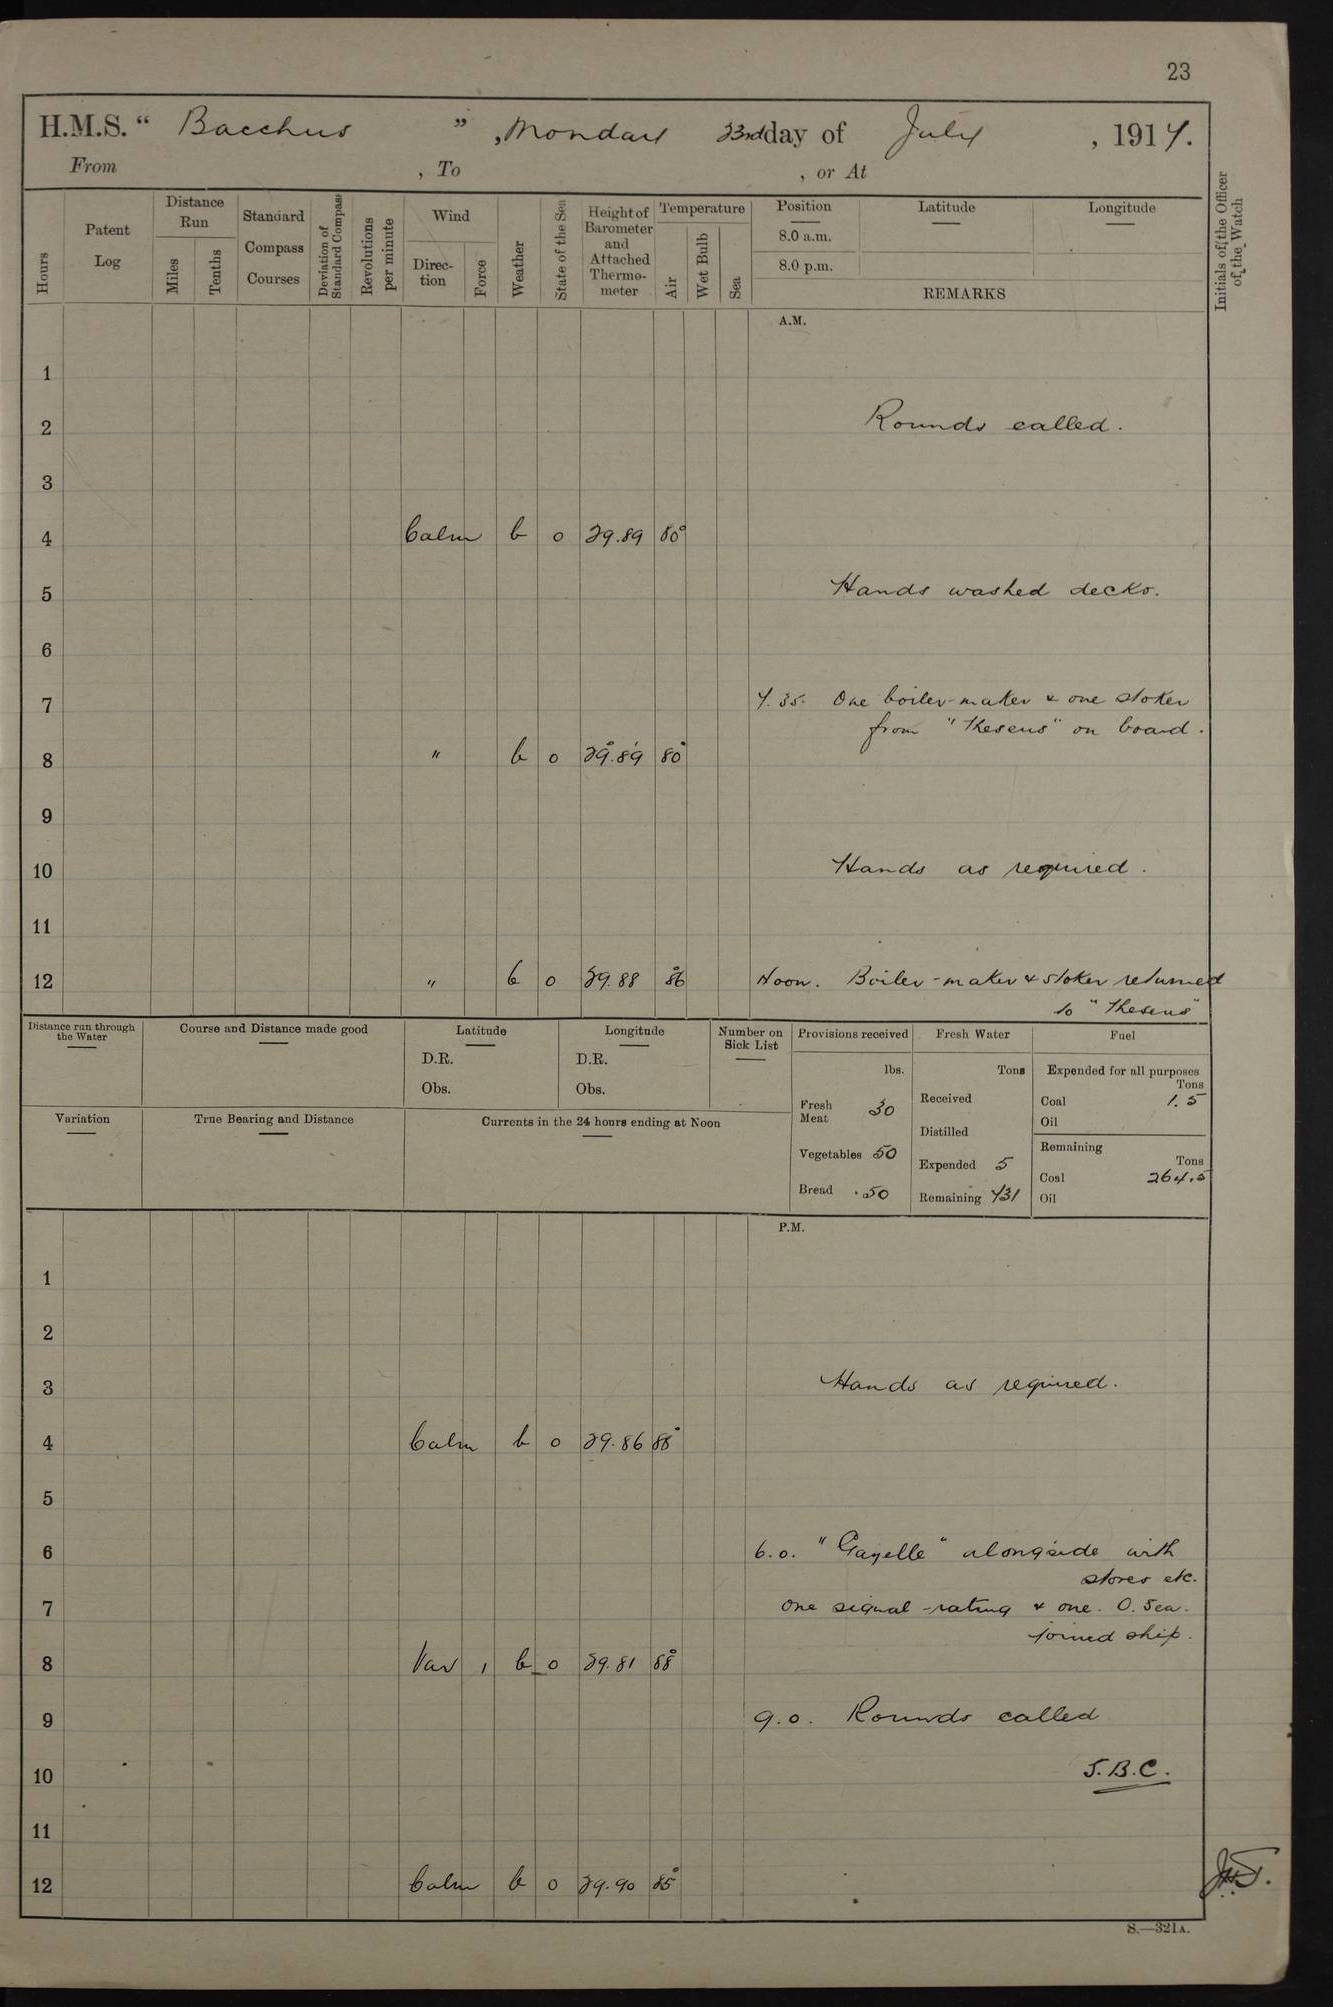 23
H.M.S. “ Bacchus ” , Monday 23rd day of July , 1917.
From , To , or At
Hours
Patent Log
Distance Run
Miles
Tenths
Standard Compass Courses
Deviation of Standard Compass
Revolutions per minute
Wind
Direc-tion
Force
Weather
State of the Sea
Height of Barometer and Attached Thermo-meter
Temperature
Air
Wet Bulb
Sea
Position Latitude Longitude
8.0 a.m.
8.0 p.m.
REMARKS
Initials of the Officer of the Watch
A.M.
1
2 Rounds called.
3
4 Calm b 0 29.89 80°
5 Hands washed decks.
6
7 7.35. One boiler-maker & one stoker
from "Theseus" on board.
8 " b 0 29.89 80°
9
10 Hands as required.
11
12 " b 0 29.88 86° Noon. Boiler-maker & stoker returned
to "Theseus"
Distance run through the Water
Course and Distance made good
Latitude
D.R.
Obs.
Longitude
D.R.
Obs.
Number on Sick List
Provisions received
lbs.
Fresh Meat 30
Vegetables 50
Bread 50
Fresh Water
Tons
Received
Distilled
Expended 5
Remaining 431
Fuel
Expended for all purposes
Tons
Coal 1.5
Oil
Remaining
Tons
Coal 264.5
Oil
Variation
True Bearing and Distance
Currents in the 24 hours ending at Noon
P.M.
1
2
3 Hands as required.
4 Calm b 0 29.86 88°
5
6 6.0. "Gazelle" alongside with
stores etc.
7 One signal-rating & one O. Sea.
joined ship.
8 Var 1 b 0 29.81 88°
9 9.0. Rounds called
10 J.B.C.
11
12 Calm b 0 29.90 85°
S.—321A.